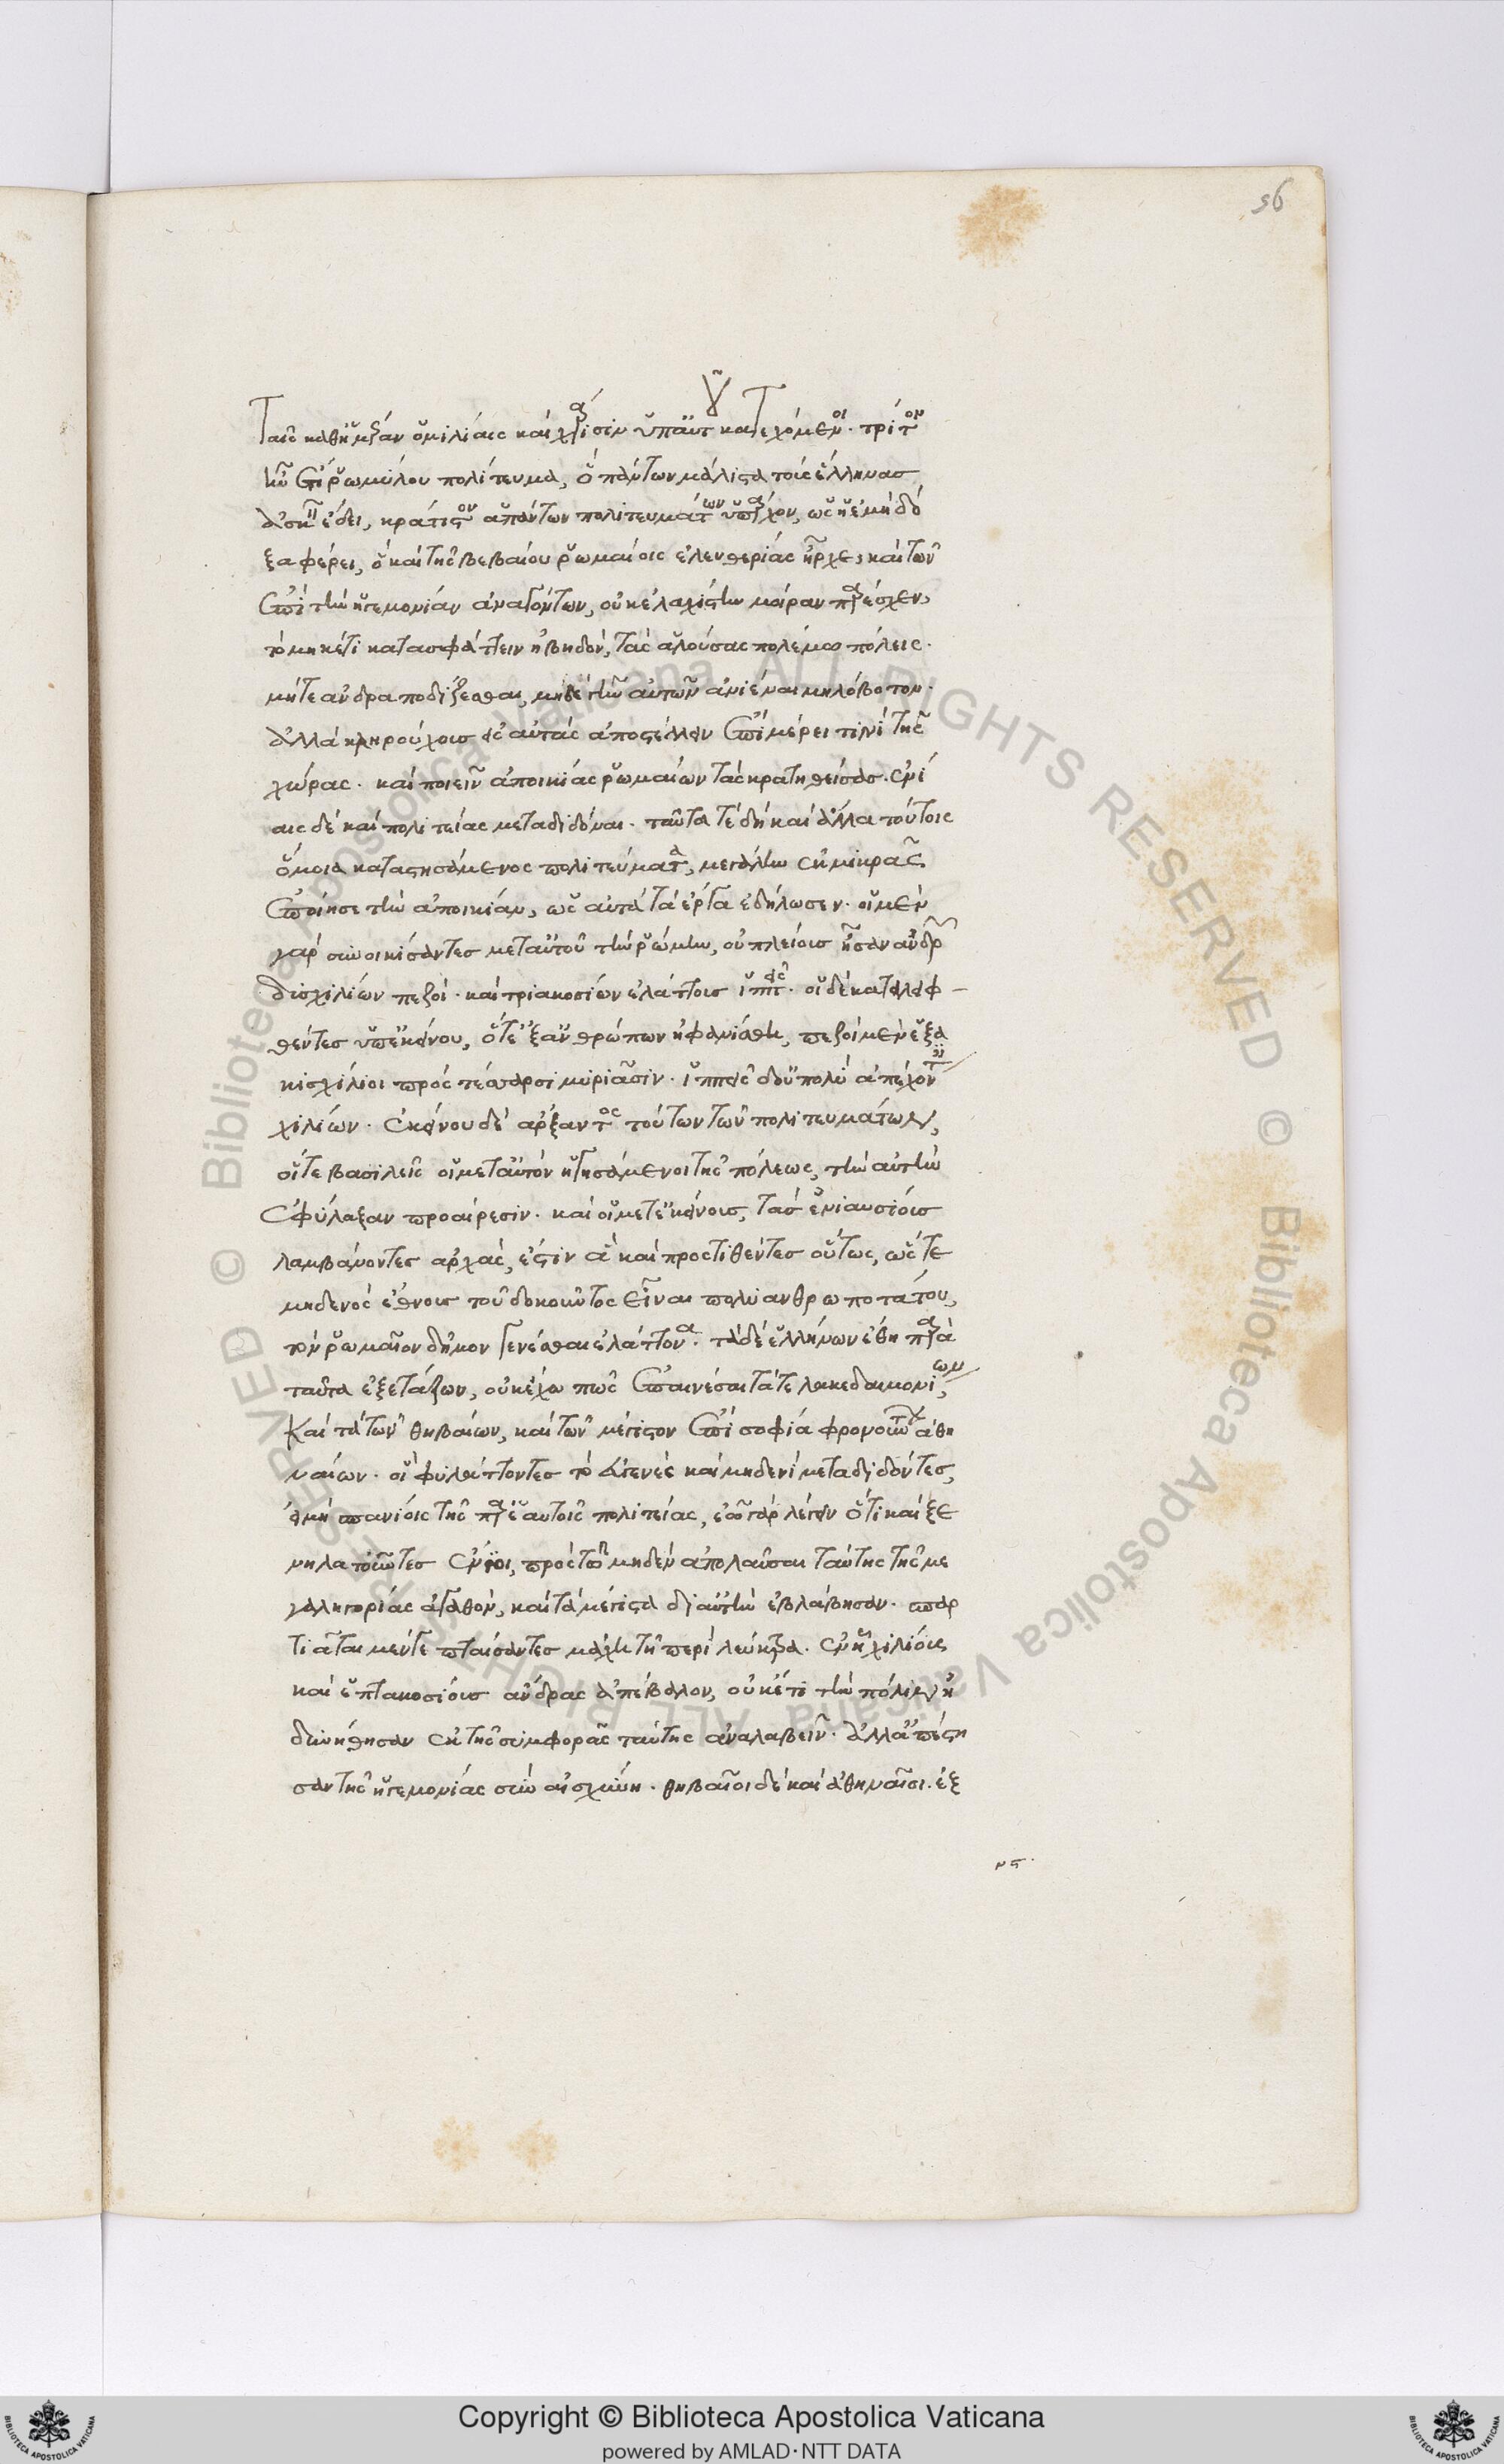 56
ταῖς καθ' ἡμέραν ὁμιλίαις καὶ χρήσεσιν ὑπ' αὐτ κατεχόμενοι. τρίτον
ἦν ἔτι ῥωμύλου πολίτευμα, ὃ πάντων μάλιστα τοὺς ἕλληνας
ἀσκεῖν ἔδει, κράτιστον ἁπάντων πολιτευμάτων ὑπάρχον, ὡς ἡ ἐμὴ δό
ξα φέρει, ὃ καὶ τῆς βεβαίου ῥωμαίοις ἐλευθερίας ἦρχε, καὶ τῶν
ἐπὶ τὴν ἡγεμονίαν ἀγαγόντων, οὐκ ἐλαχίστην μοῖραν παρέσχεν,
τὸ μηκέτι κατασφάττειν ἡβηδόν, τὰς ἁλούσας πολέμω πόλεις.
μήτε ἀνδραποδίζεσθαι, μηδὲ τὴν αὐτῶν ἀνιέναι μηλόβοτον.
ἀλλὰ κληρούχους εἰς αὐτὰς ἀποστέλλειν ἐπὶ μέρει τινὶ τῆς
χώρας. καὶ ποιεῖν ἀποικίας ῥωμαίων τὰς κρατηθείσας. ἐνί
αις δὲ καὶ πολιτείας μεταδιδόναι. ταῦτά τε δὴ καὶ ἄλλα τούτοις
ὅμοια καταστησάμενος πολιτεύματα, μεγάλην ἐκ μικρᾶς
ἐποίησε τὴν ἀποικίαν, ὡς αὐτὰ τὰ ἔργα ἐδήλωσεν. οἱ μὲν
γὰρ συνοικίσαντες μετ' αὐτοῦ τὴν ῥώμην, οὐ πλείους ἦσαν ἀνδρ
δισχιλίων πεζοί. καὶ τριακοσίων ἐλάττους ἱππεῖς. οἱ δὲ καταλειφ-
θέντες ὑπ' ἐκείνου, ὅτε ἐξ ἀνθρώπων ἠφανίσθη, πεζοὶ μὲν ἑξα
κισχίλιοι πρὸς τέσσαρσι μυριᾶσιν. ἱππεῖς δ' οὐ πολὺ ἀπέχοντες
χιλίων. ἐκείνου δὲ ἄρξαντος τούτων τῶν πολιτευμάτων,
οἵ τε βασιλεῖς οἱ μετ' αὐτὸν ἡγησάμενοι τῆς πόλεως, τὴν αὐτὴν
ἐφύλαξαν προαίρεσιν. καὶ οἱ μετ' ἐκείνους, τὰς ἐνιαυσίους
λαμβάνοντες ἀρχάς, ἔστιν ἃ καὶ προστιθέντες οὕτως, ὥστε
μηδενὸς ἔθνους τοῦ δοκοῦντος εἶναι πολυανθρωποτάτου,
τὸν ῥωμαῖον δῆμον γενέσθαι ἐλάττονα. τὰ δὲ ἑλλήνων ἔθη παρὰ
ταῦτα ἐξετάζων, οὐκ ἔχω πῶς ἐπαινέσαι τά τε λακεδαιμονίων,
καὶ τὰ τῶν θηβαίων, καὶ τῶν μέγιστον ἐπὶ σοφία φρονούντων ἀθη
ναίων. οἳ φυλάττοντες τὸ εὐγενὲς καὶ μηδενὶ μεταδιδόντες,
εἰ μὴ σπανίοις τῆς παρ' ἑαυτοῖς πολιτείας, ἐῶ γὰρ λέγειν ὅτι καὶ ξε
νηλατοῦντες ἔνιοι, πρὸς τῶ μηδὲν ἀπολαῦσαι ταύτης τῆς με
γαληγορίας ἀγαθόν, καὶ τὰ μέγιστα δι' αὐτὴν ἐβλάβησαν. σπαρ
τιᾶται μέν γε πταίσαντες μάχη τῆ περὶ λεύκτρα. ἐν ἧ χιλίους
καὶ ἑπτακοσίους ἄνδρας ἀπέβαλον, οὐκέτι τὴν πόλιν ἠ
δυνήθησαν ἐκ τῆς συμφορᾶς ταύτης ἀναλαβεῖν. ἀλλ' ἀπέστη
σαν τῆς ἡγεμονίας σὺν αἰσχύνη. θηβαῖοι δὲ καὶ ἀθηναῖοι. ἐξ
νς.